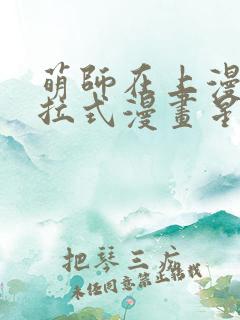 萌師在上漫
拉式漫畫星
把琴三疚
未任同意禁止轉載